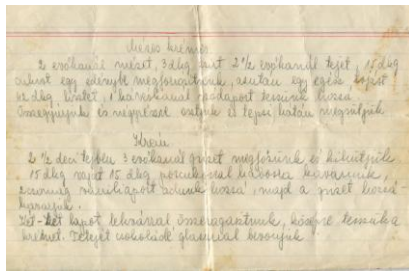 Mézes krémes
2 evőkanál mézet, 3 dkg zsírt 2 1/2 evőkanál tejet, 15 dkg
cukrot egy edénybe megforrósítunk, azután egy egész tojást
42 dkg lisztet, 1 kávéskanál szódaport teszünk hozzá
összegyúrjuk és négy részre osztjuk és tepsi hátán megsütjük
Krém
2 1/2 deci tejben 3 evőkanál grízt megfőzünk és kihűtjük
15 dkg vajat 15 dkg porcukorral habosra kavarunk,
2 csomag vaníliaport adunk hozzá, majd a grízet hozzá-
kavarjuk.
Két-két lapot lekvárral összeragasztunk, középre tesszük a
krémet. Tetejét csokoládé glazúrral bevonjuk